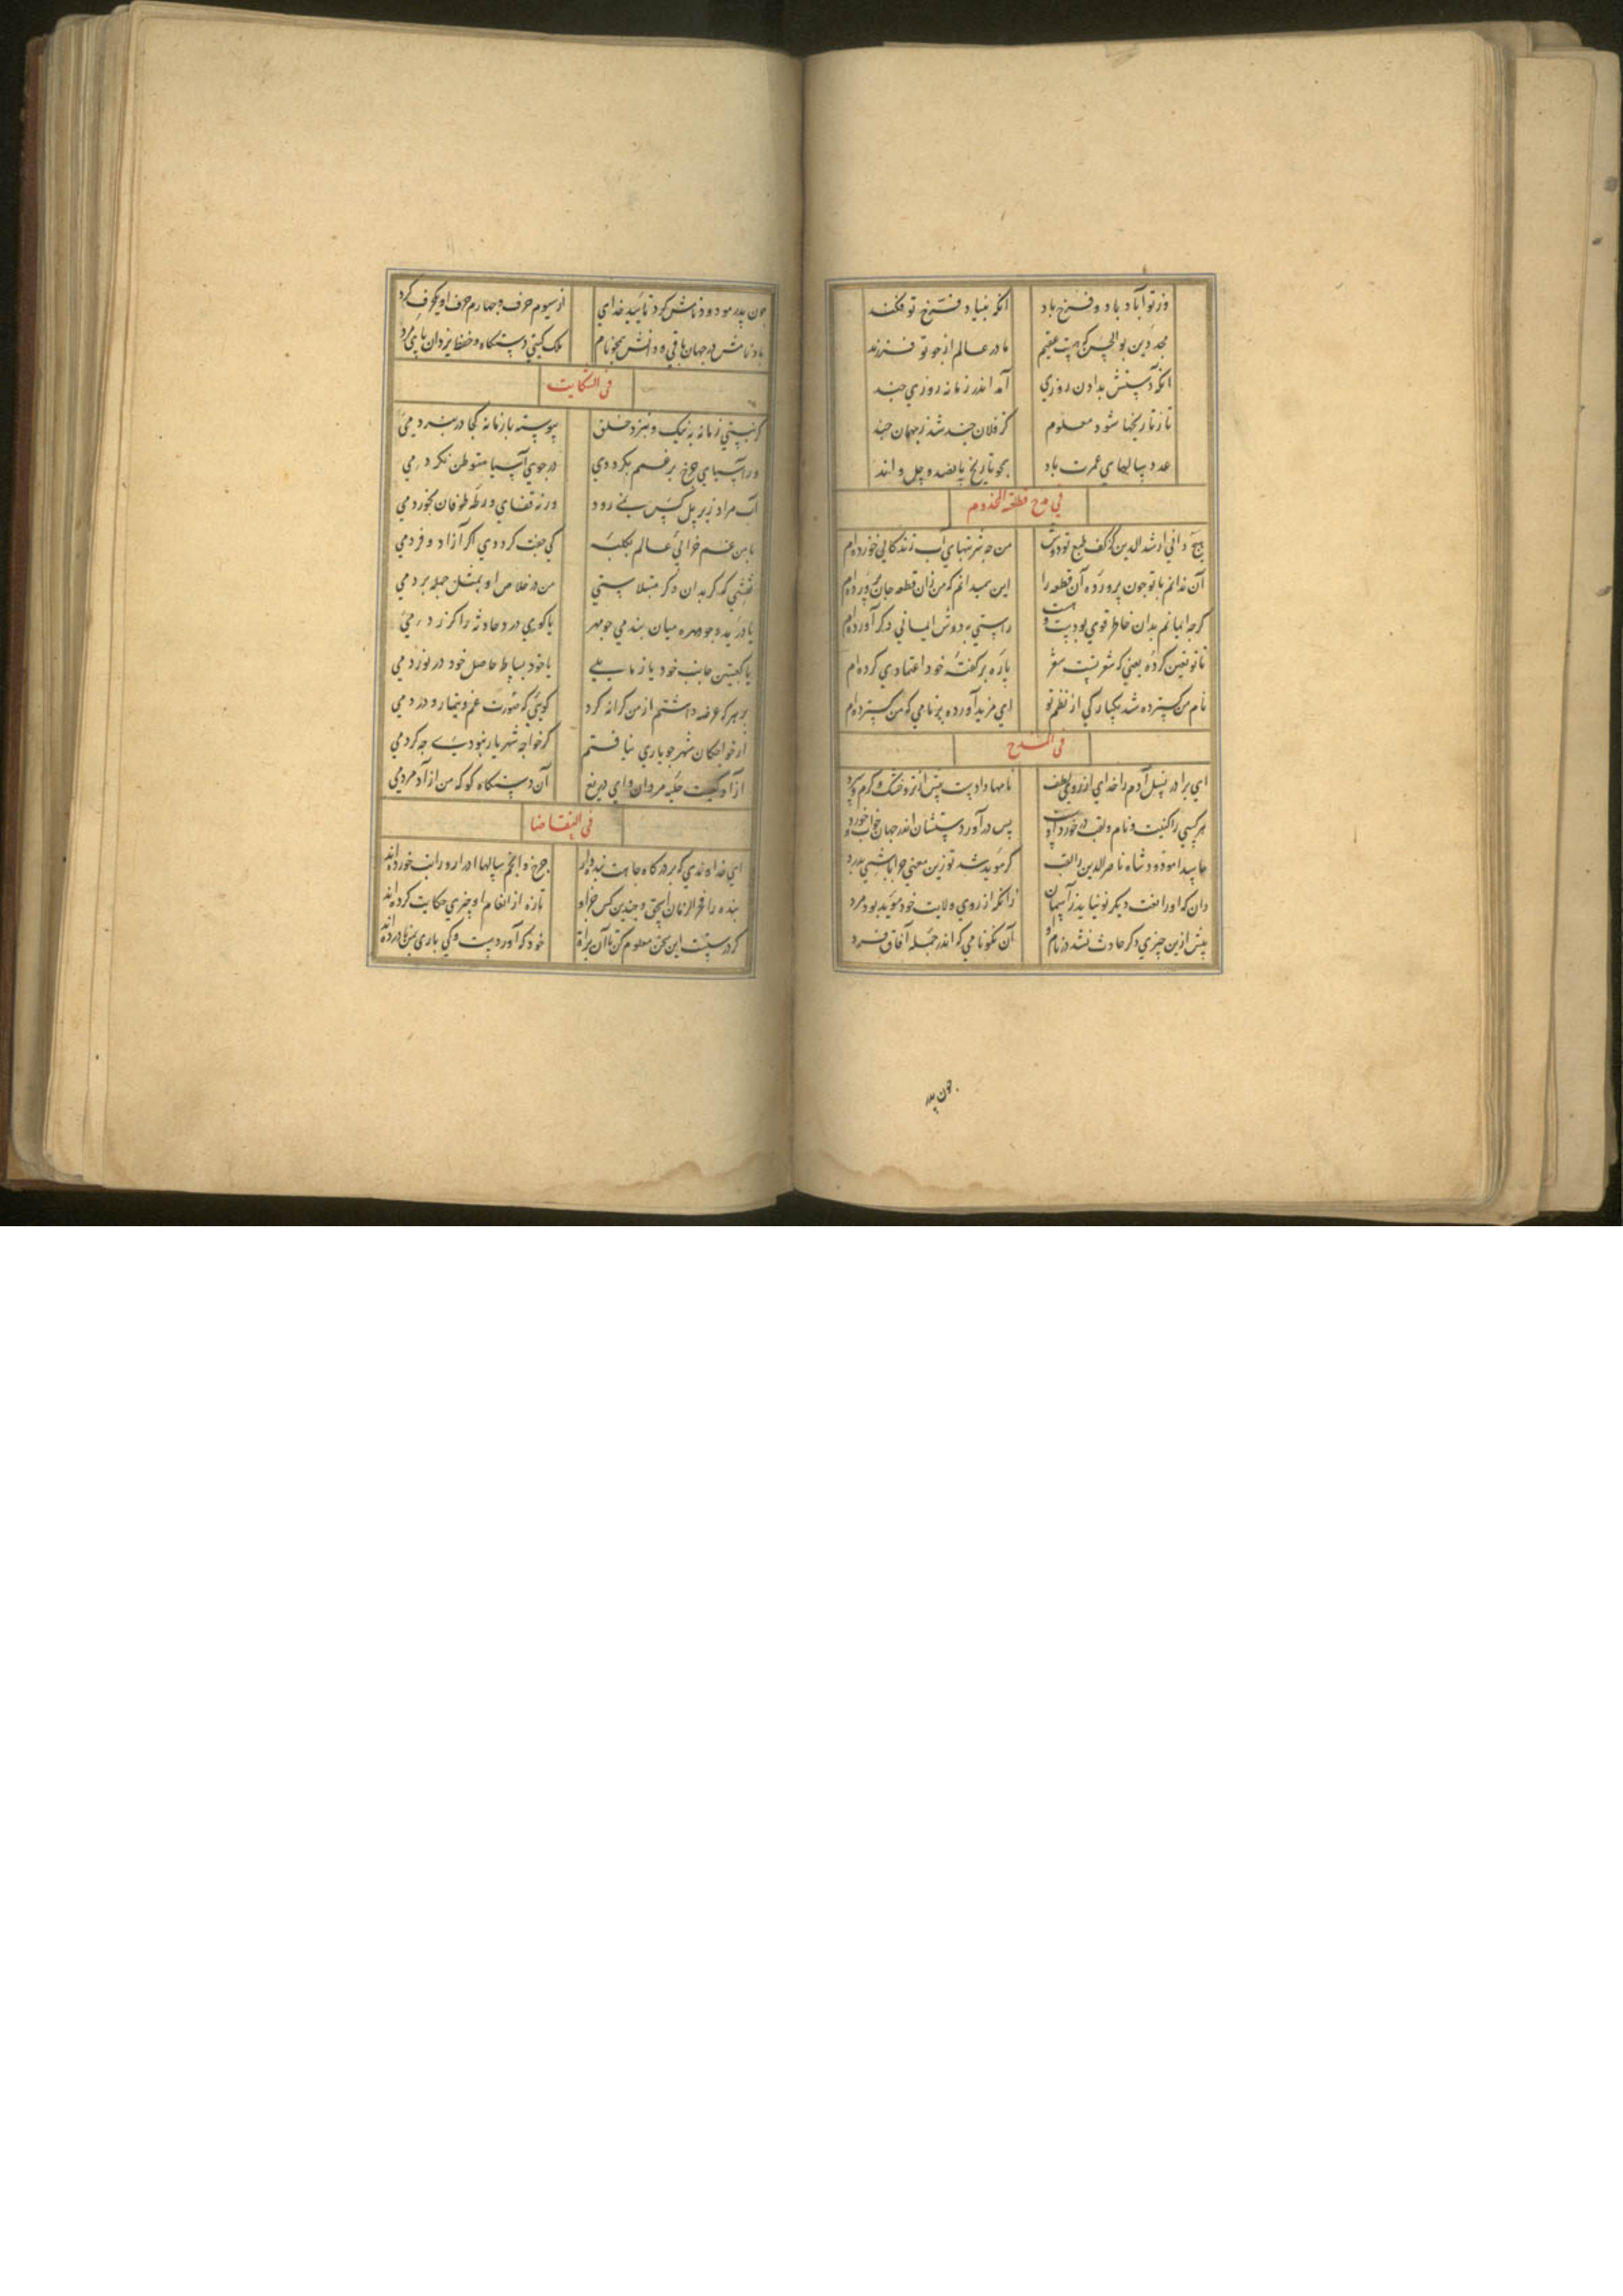 وز تو آباد باد و فرخ باد انکه بنیاد فرخ تو فکند
مجد دین بو الحسن که هست عقیم مادر عالم از جو تو فرزند
انکه دستش بدادن روزی آمد اندر زمانه روزی جند
تا ز تاریخها شود معلوم کز فلان جند شد ز جهان جند
عدد سالهای عمرت باد بجو تاریخ پانصد و جل و اند
في مدح قطعة المخدوم
هیج دانی ارشد الدین کز کف طبع تو دوش من جه شربتهای آب زندکانی خورده‌ام
آن ندانم با تو جون پرورده آن قطعه را این همیدانم که من زان قطعه جان پرورده‌ام
کرجه ایمانم بدان خاطر قوی بودست راستی به دوش ایمانی دکر آورده‌ام
تا تو تعین کرده یعنی که شعر تست شعر پاره بر کفته خود اعتمادی کرده‌ام
نام من کسترده شد یکبارکی از نظم تو ای مزید آورده بر نامی که من کسترده‌ام
فی المدح
ای برادر نسل آدم را خدای از روی لطف نامها دادست پیش از تر و خشک و کرم و سرد
هر کسی را کنیت و نام و لقب در خورد او پس در آوردستشان اندر جهان خواب و خورد
حاسدا مودود شاه ناصر الدین را لقب کر موید شد تو زین معنی جرا باشی بدرد
دان که او را نعت دیکر نو نیاید ز آسمان زانکه از روی ولایت خود موید بود مرد
بیش ازین چیزی دکر حادث نشد در نام او آن نکونامی که اندر جمله آفاق فرد
جون پدر
جون پدر مودود نامش کرد تایید خدای از سیوم حرف و جهارم حرف او یکحرف کرد
باد نامش در جهان باقی و ذاتش همجو نام ملک کیتی دستکاه و حفظ یزدان پای مرد
فی الشکایت
کر نیستی زمانه به نیک و نبرد خلق پیوسته با زمانه کجا در نبردمی
ور آسیای جرخ بر غمم بکرددی در جوی آسیا متوطن نکردمی
آب مراد زیر پل کس نمی رود ور نه قفای ورطه طوفان بخوردمی
با من غم خرابی عالم بکلبه کی جفت کرددی اکر آزاد و فردمی
نفسی که کر بدان دکر مبتلاستی من در خلاص او بمثل حیله بردمی
یا در پدید وجو مهره میان بندمی جو مهر یا کوری در حادثه را کرز دردمی
یا کعبتین جانب خود باز مالمی یا خود بساط حاصل خود در نوردمی
بر هر که عرضه داشتم از من کرانه کرد کویی که صورت غم و تیمار و دردمی
از خواجکان شهر جو یاری نیافتم کر خواجه شهریار نبودی جه کردمی
آزادکیست حلیه مردان وای دریغ آن دستکاه کو که من ازاد مردمی
فی التقاضا
ای خداوندی که بر درکاه جاهت بنده‌وار جرخ و انجم سالها ادرار و راتب خورده‌اند
بنده را فخر الزمان اسحق و جندین کس جز او تازه از انعام او چیزی حکایت کرده‌اند
کر درستست این سخن معلوم کن تا آن برات خود که آوردست وکی باری بنزها در ده‌اند